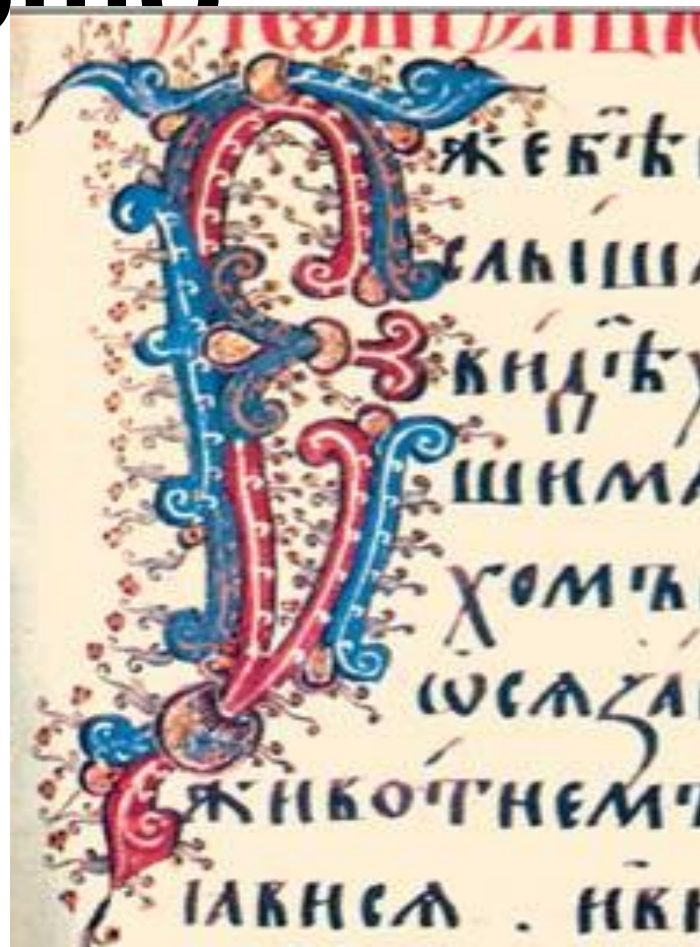 Ежебѣ
слыша
видѣх
шима
хомъ
ѡсѧза
животнемъ
ꙗвисѧ . ив